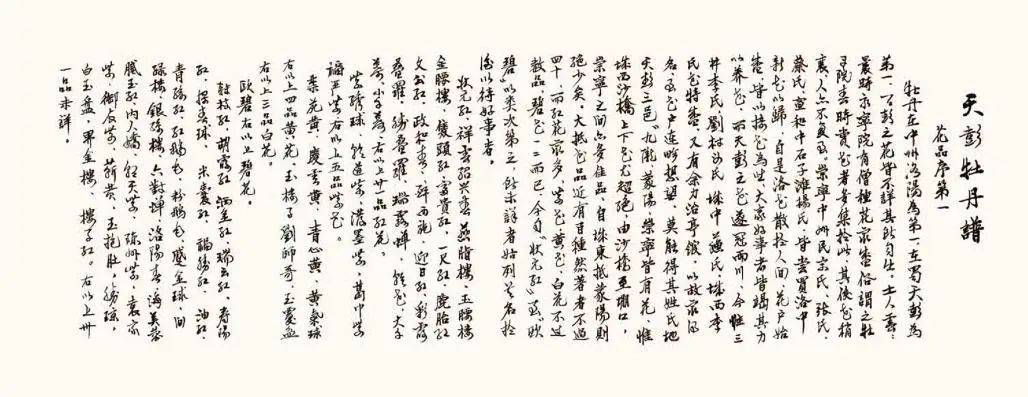 天彭牡丹譜
花品序第一
牡丹在中州洛陽為第一,在蜀天彭為
第一。天彭之花皆不詳其所自出,土人云:
曩時永寧院有僧種花最盛俗謂之牡
丹院春時賞花者多集於此。其後花稍
衰,人亦不復至。崇寧中州民宋氏、張氏、
蔡氏,宣和中石子灘楊氏,皆嘗買洛中
新花以歸,自是洛花散於人間,花戶始
盛,皆以接花為業,大家好事者皆竭其力
以養花,而天彭之花遂冠兩川,今惟三
井李氏,劉村母氏、城中蘇氏、城西李
氏花特盛,又有余力治亭館,以故最得
名,至花戶連畛相望,莫能得其姓氏也
天彭三邑(九隴、蒙陽、崇寧)皆有花,惟
城西沙橋上下花尤超絕,由沙橋至堋口,
崇寧之間亦多佳品,自城東抵蒙陽則
絕少矣。大抵花品近百種然著者不過
四十,而紅花最多,紫花、黃花、白花不過
數品,碧花一二而已。今自“狀元紅”至“歐
碧”以類次第之,所未詳者姑列其名於
後以待好事者。
狀元紅、祥雲、紹興春、燕脂樓、玉腰樓
金腰樓、雙頭紅、富貴紅、一尺紅、鹿胎紅
文公紅、政和春、醉西施、迎日紅、彩霞
疊羅、勝疊羅、瑞露蟬、乾花、大千
葉、小千葉。右以上廿一品紅花。
紫繡球、乾道紫、潑墨紫、葛巾紫
福嚴紫。右以上五品紫花。
禁苑黃、慶雲黃、青心黃、黃氣球
右以上四品黃花。玉樓子 劉師哥 玉覆盂
右以上三品白花。
歐碧右以上碧花。
轉枝紅、朝霞紅、灑金紅、瑞雲紅、壽陽
紅、探春球、米囊紅、福勝紅、油紅、
青絲紅、紅鵝毛、粉鵝毛、蹙金球、間
綠樓、銀絲樓、六對蟬、洛陽春、海芙蓉
膩玉紅、內人嬌、朝天紫、陳州紫、袁家
紫、御衣紫、靳黃、玉抱肚、勝瓊、
白玉盤、界金樓、樓子紅。右以上卅
一品未詳。